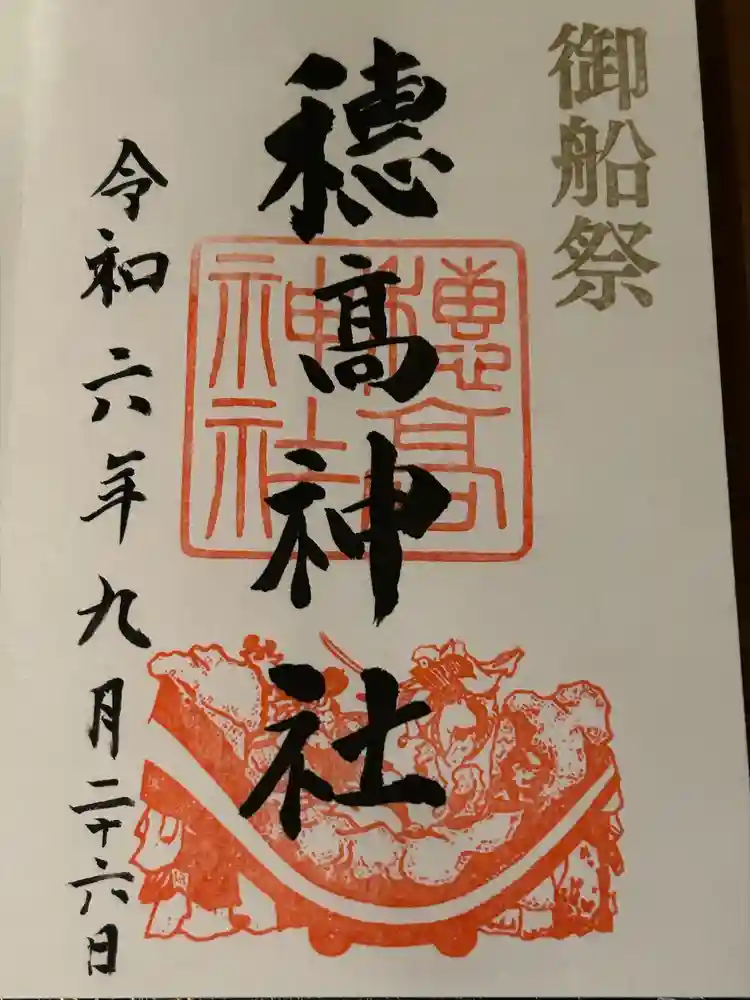 御船祭
穂高神社
穂高
神社
令和六年九月二十六日